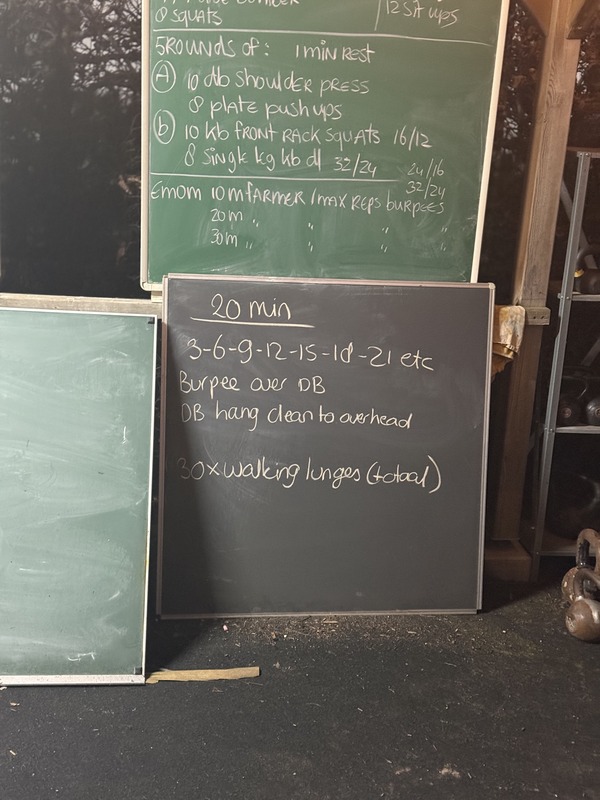 8 squats
12 sit ups
5 ROUNDS OF: 1 min REST
(A) 10 db SHOULDER PRESS
8 plate push ups
(b) 10 kb FRONT RACK SQUATS 16/12
8 single leg kb dl 32/24 24/16
32/24
Emom 10m FARMER / max REPS burpees
20m " " " "
30m " " " "
20 min
3-6-9-12-15-18-21 etc
Burpee over DB
DB hang clean to overhead
30x walking lunges (totaal)